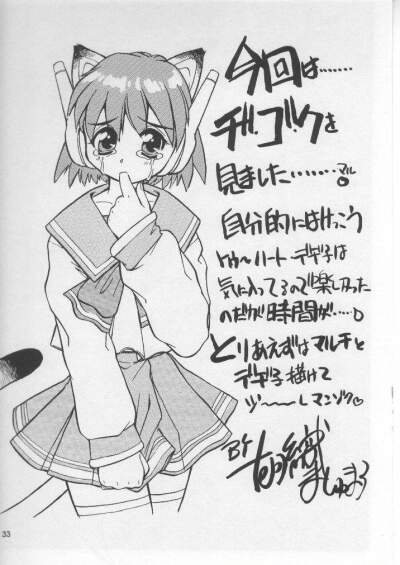 今回は………
ヂ・ゴ・クを
見ました………マル。
自分的にはけっこう
トゥーハート デギ子は
気に入ってるので楽しかった
のだが時間が……。
とりあえずはマルチと
デギ子描けて
マンゾク♡
BY
ましゅまろ
33